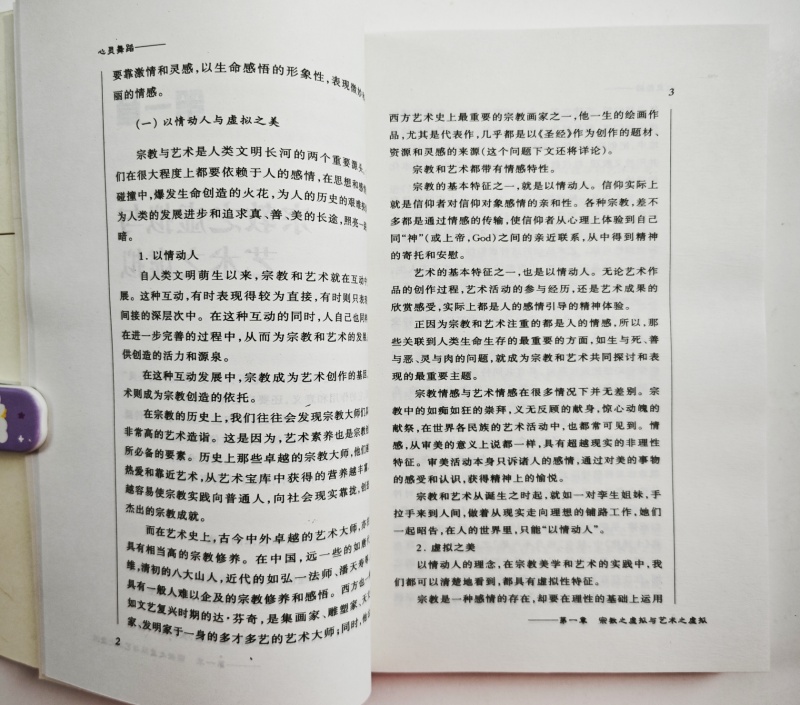 心灵舞蹈
要靠激情和灵感，以生命感悟的形象性，表现微妙
丽的情感。
(一) 以情动人与虚拟之美
宗教与艺术是人类文明长河的两个重要源头，
们在很大程度上都要依赖于人的感情，在思想和感情
碰撞中，爆发生命创造的火花，为人的历史的艰难
为人类的发展进步和追求真、善、美的长途，照亮一
暗。
1. 以情动人
自人类文明萌生以来，宗教和艺术就在互动中
展。这种互动，有时表现得较为直接，有时则只表现
间接的深层次中。在这种互动的同时，人自己也同
在进一步完善的过程中，从而为宗教和艺术的发展
供创造的活力和源泉。
在这种互动发展中，宗教成为艺术创作的基因
术则成为宗教创造的依托。
在宗教的历史上，我们往往会发现宗教大师们
非常高的艺术造诣。这是因为，艺术素养也是宗教
所必备的要素。历史上那些卓越的宗教大师，他们
热爱和靠近艺术，从艺术宝库中获得的营养越丰
越容易使宗教实践向普通人，向社会现实靠拢，创
杰出的宗教成就。
而在艺术史上，古今中外卓越的艺术大师，
具有相当高的宗教修养。在中国，远一些的如唐
维，清初的八大山人，近代的如弘一法师、潘天寿
具有一般人难以企及的宗教修养和感悟。西方也
如文艺复兴时期的达·芬奇，是集画家、雕塑家、
家、发明家于一身的多才多艺的艺术大师；同时，
2
3
西方艺术史上最重要的宗教画家之一，他一生的绘画作
品，尤其是代表作，几乎都是以《圣经》作为创作的题材、
资源和灵感的来源（这个问题下文还将详论）。
宗教和艺术都带有情感特性。
宗教的基本特征之一，就是以情动人。信仰实际上
就是信仰者对信仰对象感情的亲和性。各种宗教，差不
多都是通过情感的传输，使信仰者从心理上体验到自己
同“神”（或上帝，God）之间的亲近联系，从中得到精神
的寄托和安慰。
艺术的基本特征之一，也是以情动人。无论艺术作品
的创作过程，艺术活动的参与经历，还是艺术成果的
欣赏感受，实际上都是人的感情引导的精神体验。
正因为宗教和艺术注重的都是人的情感，所以，那
些关联到人类生命生存的最重要的方面，如生与死、善
与恶、灵与肉的问题，就成为宗教和艺术共同探讨和表
现的最重要主题。
宗教情感与艺术情感在很多情况下并无差别。宗
教中的如痴如狂的崇拜，义无反顾的献身，惊心动魄的
献祭，在世界各民族的艺术活动中，也都常可见到。情
感，从审美的意义上说都一样，具有超越现实的非理性
特征。审美活动本身只诉诸人的感情，通过对美的事物
的感受和认识，获得精神上的愉悦。
宗教和艺术从诞生之时起，就如一对孪生姐妹，手
拉手来到人间，做着从现实走向理想的铺路工作，她们
一起昭告，在人的世界里，只能“以情动人”。
2. 虚拟之美
以情动人的理念，在宗教美学和艺术的实践中，我
们都可以清楚地看到，都具有虚拟性特征。
宗教是一种感情的存在，却要在理性的基础上运用
第一章 宗教之虚拟与艺术之虚拟